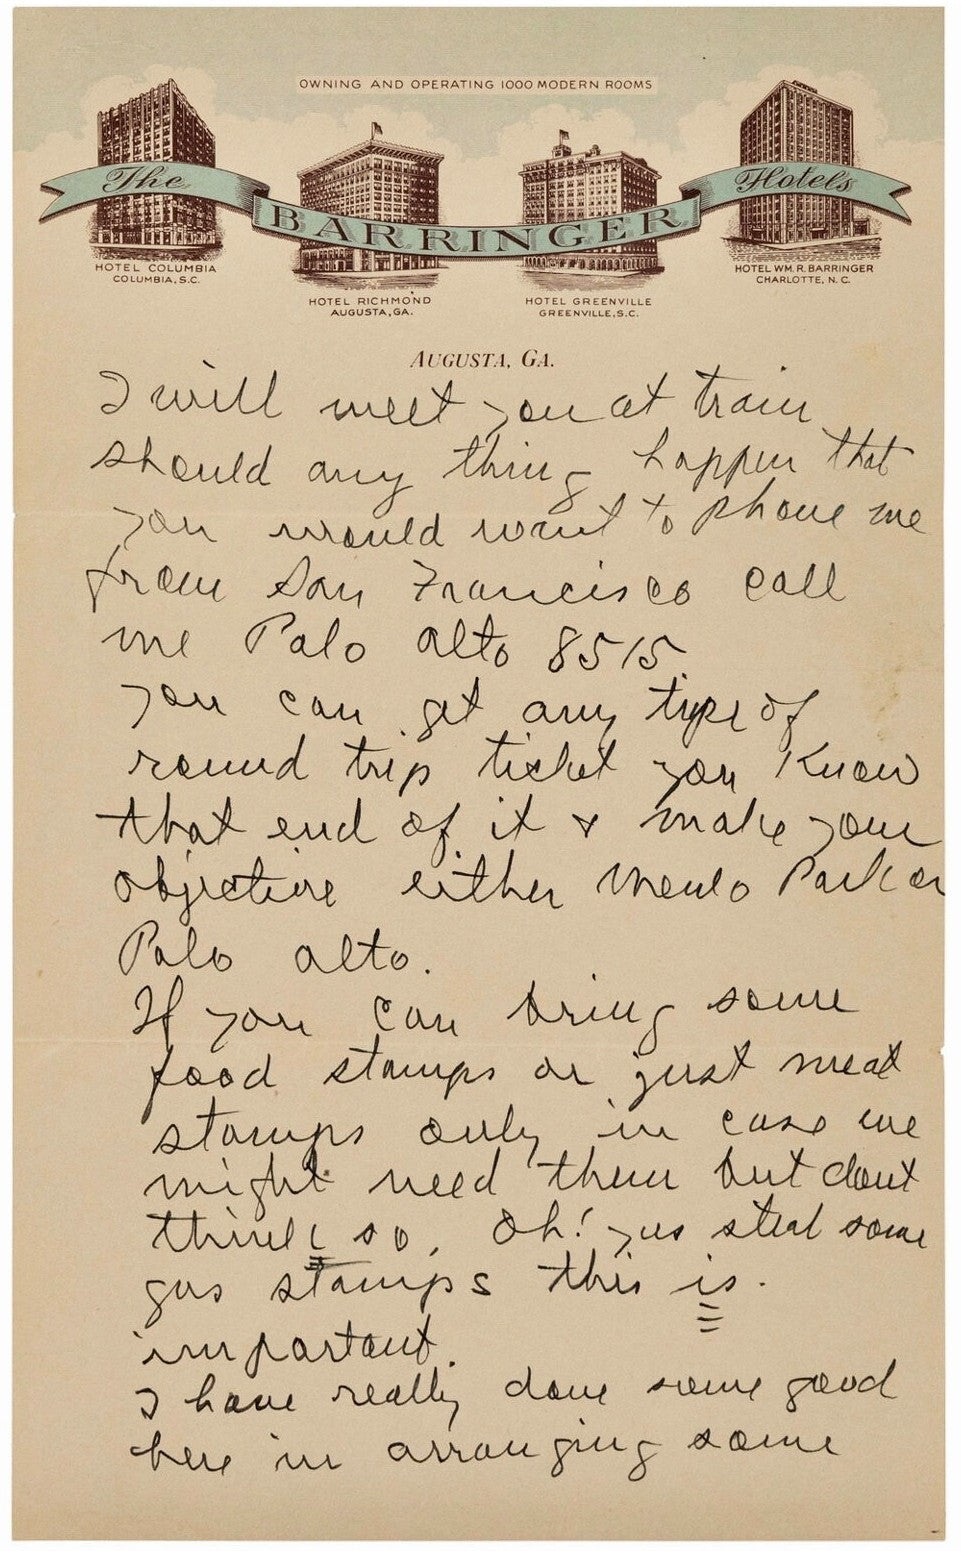 OWNING AND OPERATING 1000 MODERN ROOMS
The BARRINGER Hotels
HOTEL COLUMBIA
COLUMBIA, S.C.
HOTEL RICHMOND
AUGUSTA, GA.
HOTEL GREENVILLE
GREENVILLE, S.C.
HOTEL WM. R. BARRINGER
CHARLOTTE, N.C.
AUGUSTA, GA.
I will meet you at train
should any thing happen that
you would want to phone me
from San Francisco call
me Palo alto 8515
you can get any type of
round trip ticket you Know
that end of it & make your
objective either Menlo Park or
Palo alto.
If you can bring some
food stamps or just meat
stamps only in case we
might need them but dont
think so, Oh! yes steal some
gas stamps this is.
important.
I have really done some good
here in arranging some